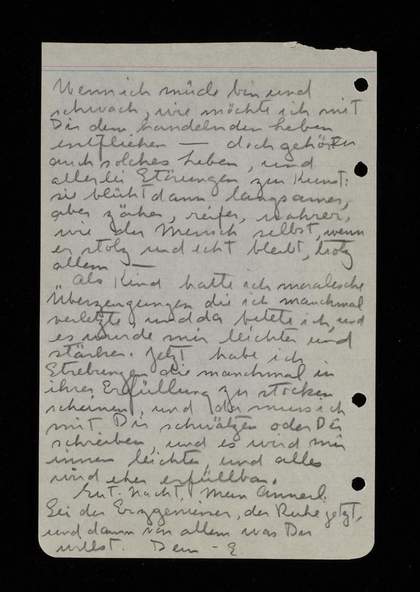 Wenn ich müde bin und
schwach, wie möchte ich mit
Dir dem handelnden Leben
entfliehen — doch gehören
auch solches Leben, und
allerlei Störungen zur Kunst:
sie blüht dann langsamer,
aber zäher, reifer, wahrer,
wie der Mensch selbst, wenn
er stolz und echt bleibt, trotz
allem —
Als Kind hatte ich moralische
Überzeugungen die ich manchmal
verletzte, und da betete ich, und
es wurde mir leichter und
stärker. Jetzt habe ich
Strebungen die manchmal in
ihrer Erfüllung zu stocken
scheinen, und da muss ich
mit Dir schwätzen oder Dir
schreiben, und es wird mir
innen leichter und alles
wird eher erfüllbar.
Gut. Nacht, mein Annerl.
Sei der, der Ruhe jetzt,
und dann von allem was Du
willst. Dein - E